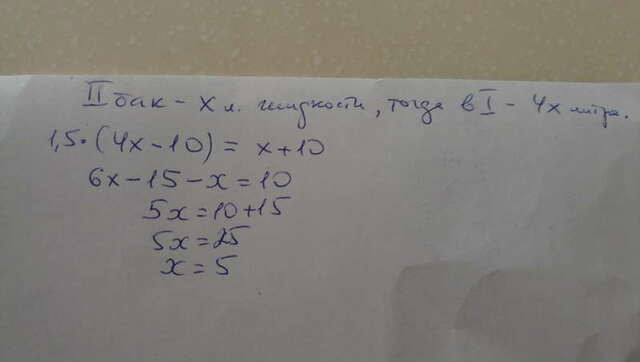 II бак - x л. жидкости, тогда в I - 4x литра.
1,5·(4x-10)= x+10
6x-15-x=10
5x=10+15
5x=25
x=5